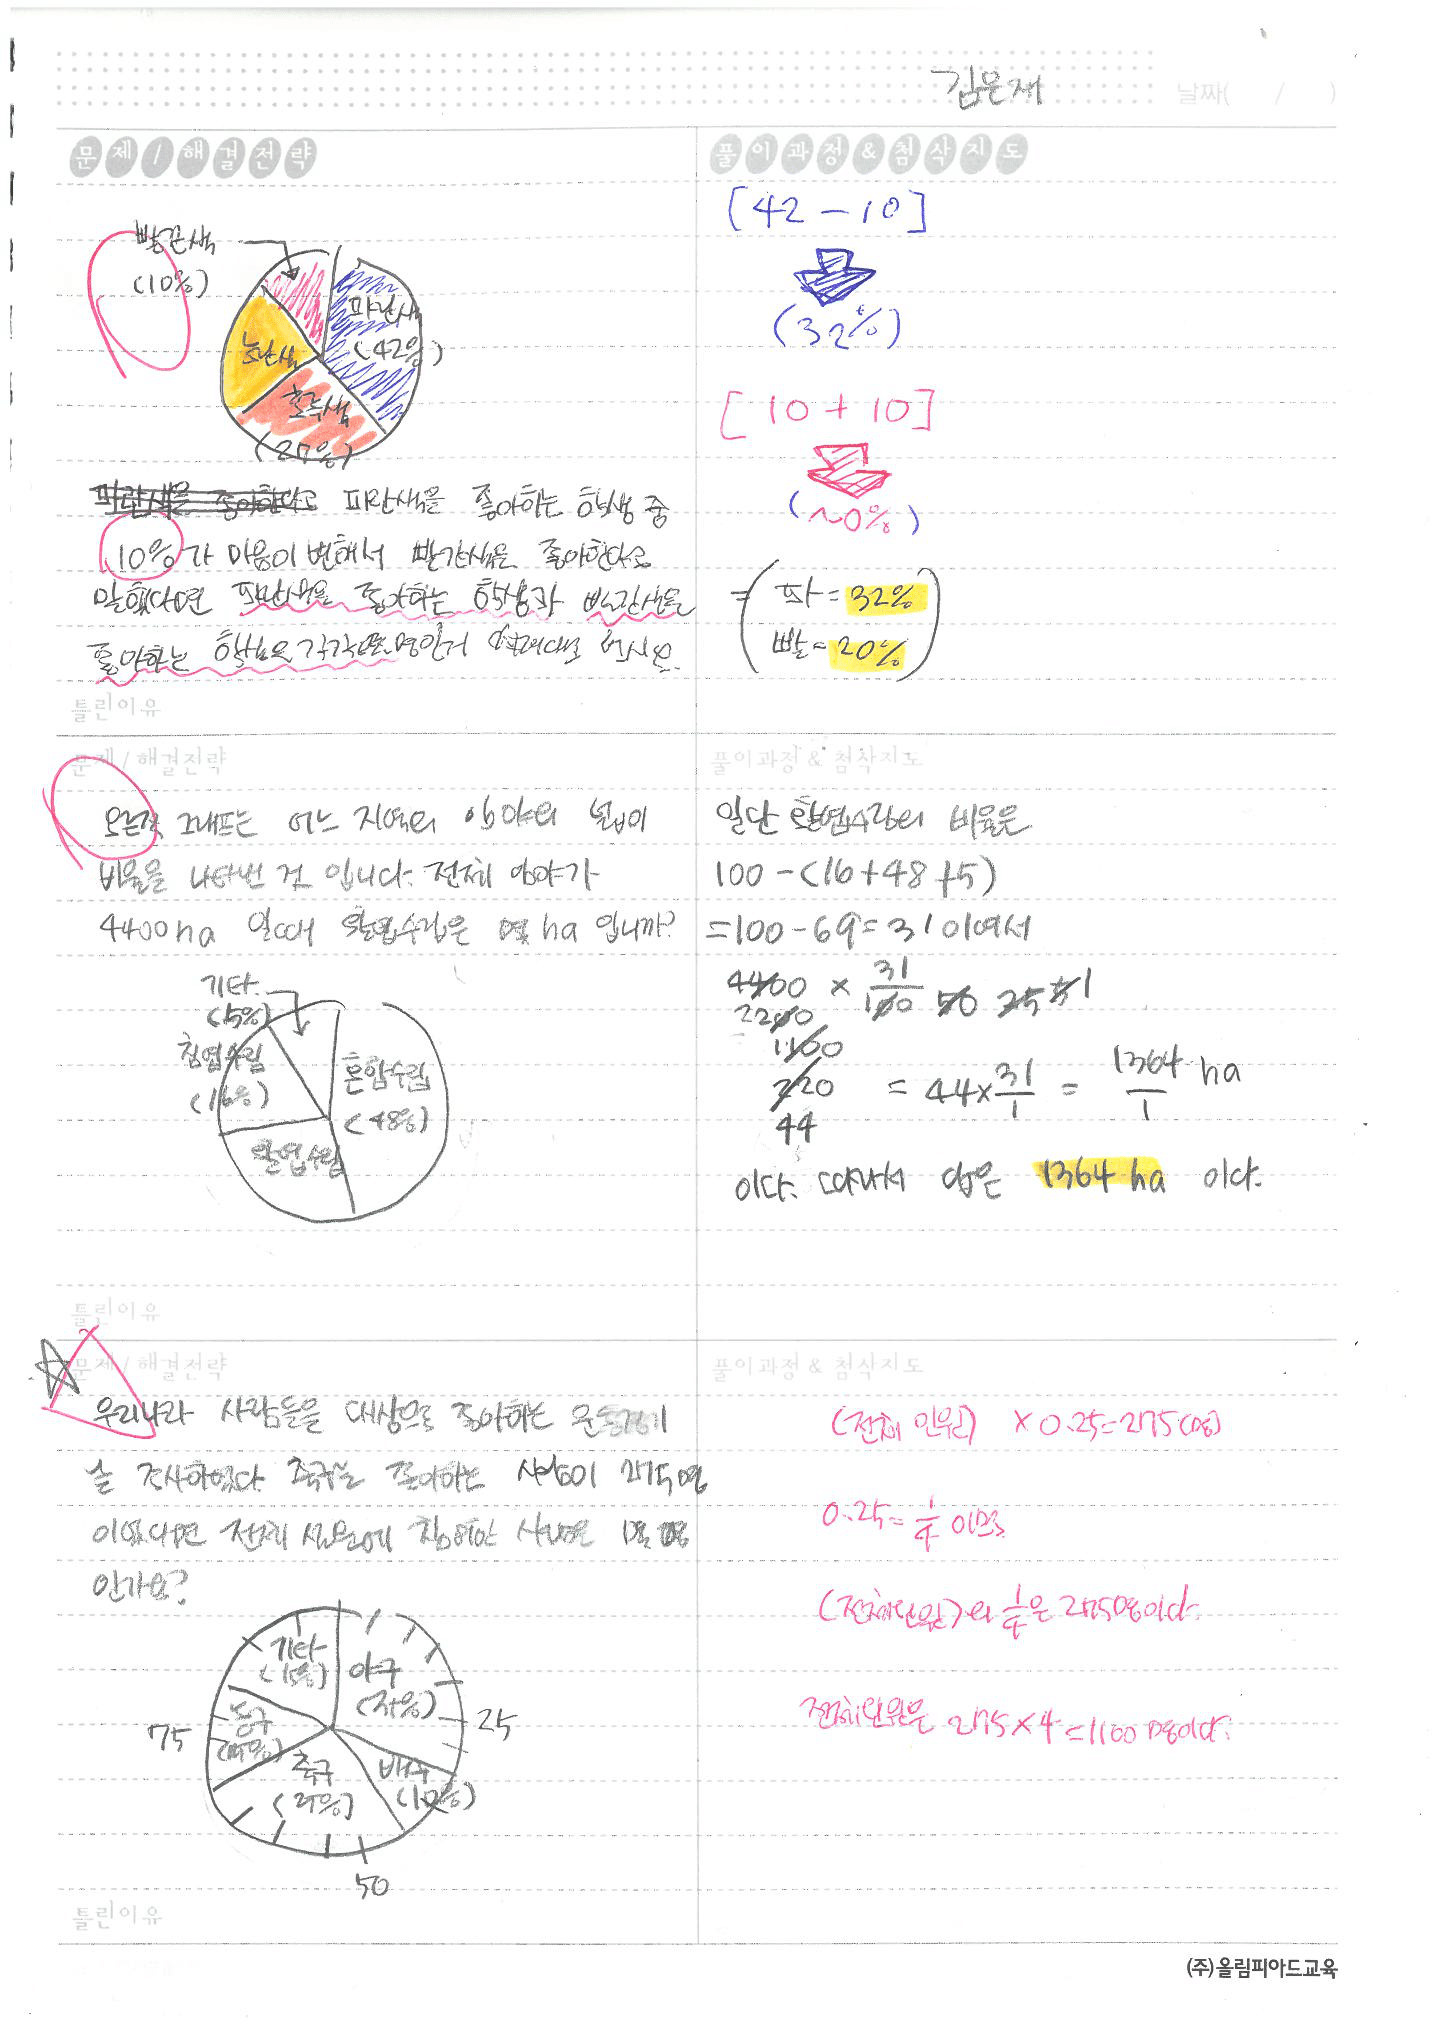 김문제
날짜( / )
문제/해결전략
빨간색
(10%)
파란색
(42%)
노란색
초록색
(27%)
파란색을 좋아한다고 파란색을 좋아하는 학생 중
10%가 마음이 변해서 빨간색을 좋아한다고
말했다면 파란색을 좋아하는 학생과 빨간색을
좋아하는 학생은 각각
풀이과정&첨삭지도
[42-10]
(32%)
[10+10]
(20%)
= 파=32%
빨=20%
틀린이유
문제/해결전략
오른쪽 그래프는 어느 지역의 임야의 넓이
비율을 나타낸 것 입니다. 전체 임야가
4400ha 일때 활엽수림은 몇 ha 입니까?
기타
(5%)
침엽수림
(16%)
혼합수림
(48%)
활엽수림
풀이과정 & 첨삭지도
일단 활엽수림의 비율은
100-(16+48+5)
=100-69=31 이여서
4400 × 31/100 50 25 5 1
2200
1100
220
44
= 44×31/1 = 1364/1 ha
이다. 따라서 답은 1364 ha 이다.
틀린이유
문제/해결전략
우리나라 사람들을 대상으로 좋아하는 운동경기
를 조사하였다. 축구를 좋아하는 사람이 275명
이였다면 전체 설문에 참여한 사람은 몇 명
인가요?
기타
(15%)
야구
농구
축구
배구
(10%)
25
50
75
풀이과정 & 첨삭지도
(전체 인원) × 0.25=275(명)
0.25=1/4 이므로
(전체인원)의 1/4은 275명이다.
전체인원은 275×4=1100명이다.
틀린이유
(주)올림피아드교육